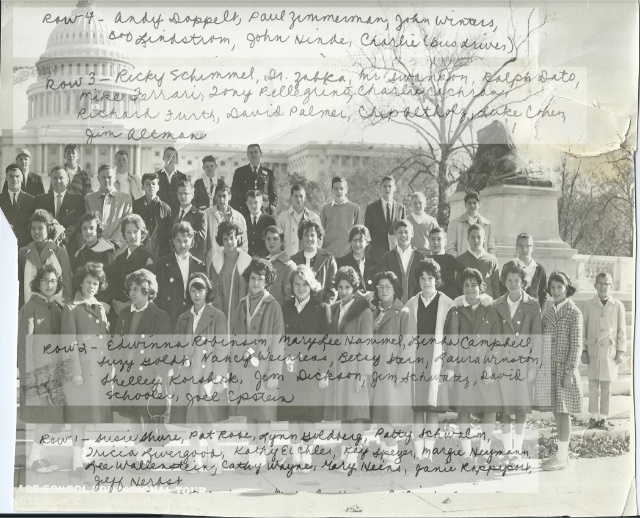 Row 4 - Andy Doppelt, Paul Zimmerman, John Winters,
Bob Lindstrom, John Hinde, Charlie (bus driver)
Row 3 - Ricky Schimmel, Dr. Zabka, Mr. Swanson, Ralph Dato,
Mike Ferrari, Tony Pellegrino, Charlie Cochran,
Richard Furth, David Palmer, Chip Althoz, Luke Cohen,
Jim Altman
Row 2 - Edwinna Robinson, Mary Lee Hammel, Linda Campbell,
Suzy Goldt, Nancy Weinress, Betsy Stern, Laura Winston,
Shelley Korshak, Jim Dickson, Jim Schwartz, David
Schooler, Joel Epstein
Row 1 - Susie Shure, Pat Rose, Lynn Goldberg, Patty Schwalm,
Tricia Livergood, Kathy Eichler, Kay Speyer, Margie Neumann,
Lee Wallenstein, Cathy Wayne, Mary Neins, Janie Kappgport
Jeff Herbst
SCHOOL TOUR